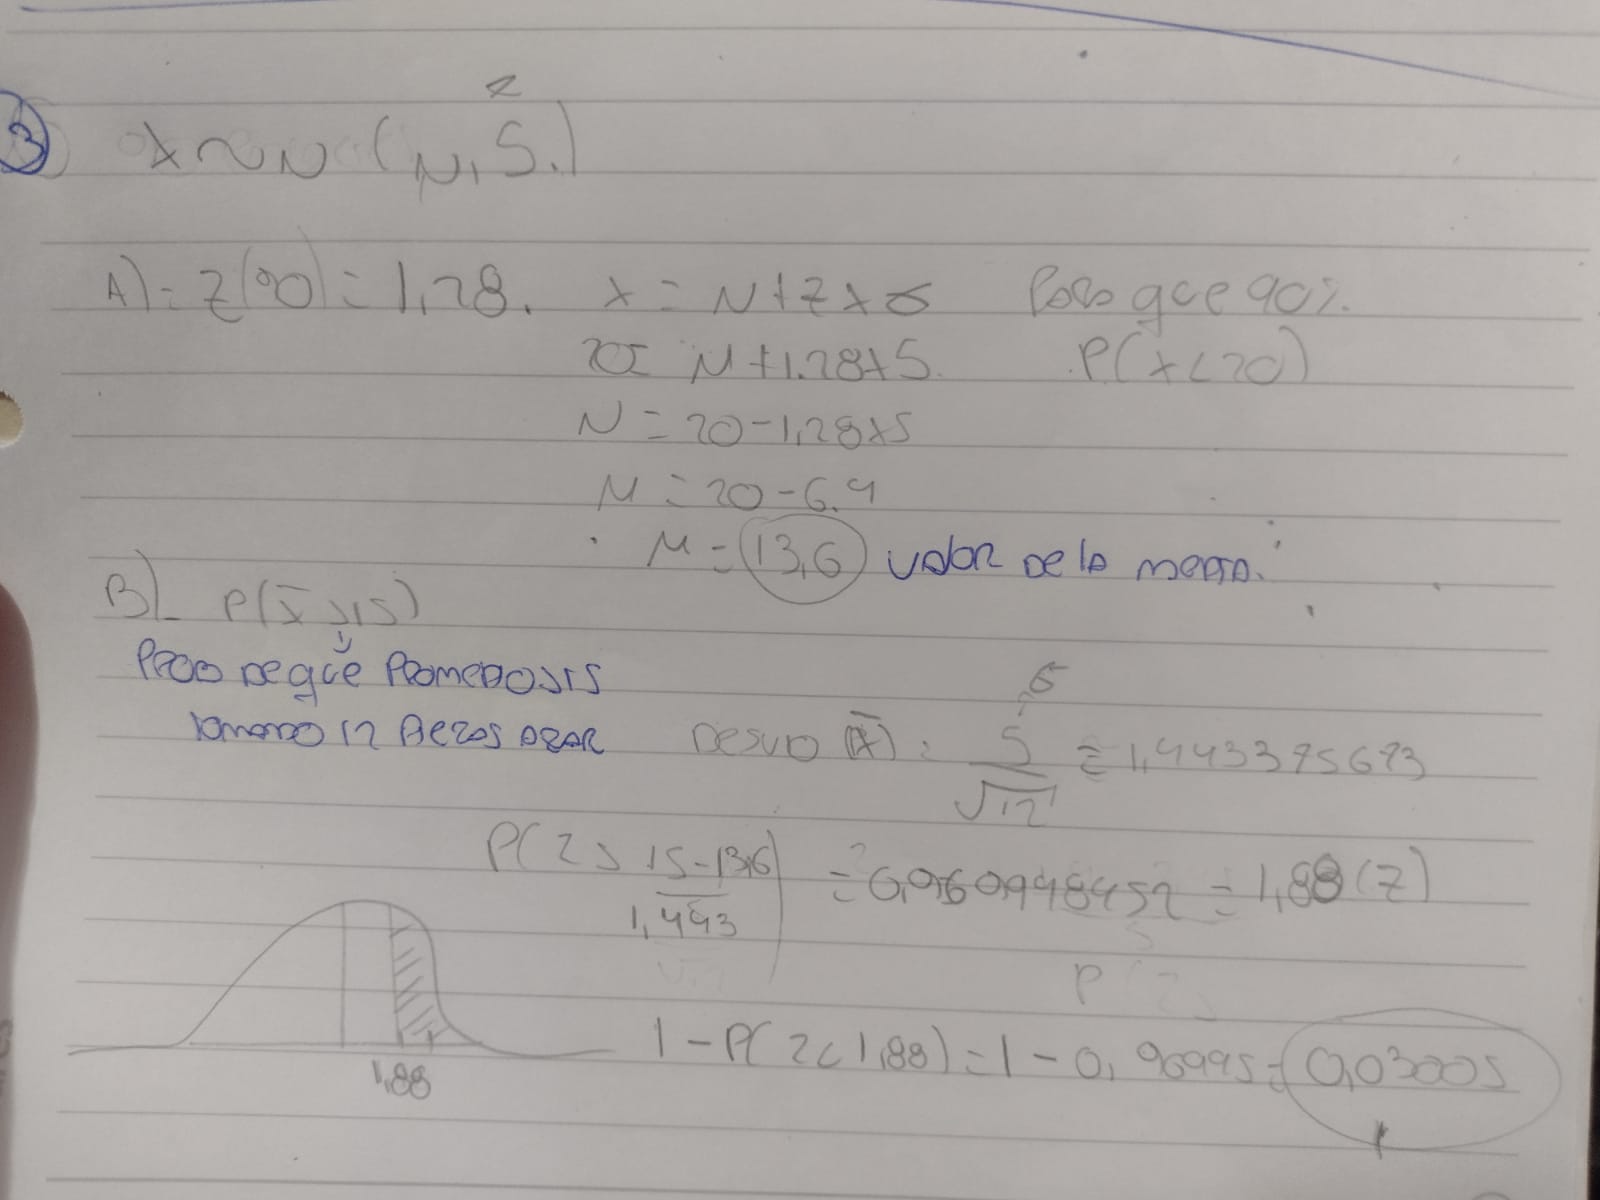 2
3) X ~ N (μ, 5.)
A)- Z(90) = 1,28. X = μ + Z x σ Para que 90%.
20 = μ + 1.28 x 5. P(X < 20)
μ = 20 - 1,28 x 5
μ = 20 - 6.4
μ = 13,6 valor de la media.
B)- P(X̄ > 15)
Prob de que Promedio > 15
tomando 12 Piezas azar Desvio (X̄) = 5/√12 = 1,443375673
σ
P(Z > 15 - 13,6 / 1,443) = 0,960948452 = 1,88 (Z)
P (Z >
1,88
1 - P(Z < 1,88) = 1 - 0,96995 = 0,03005